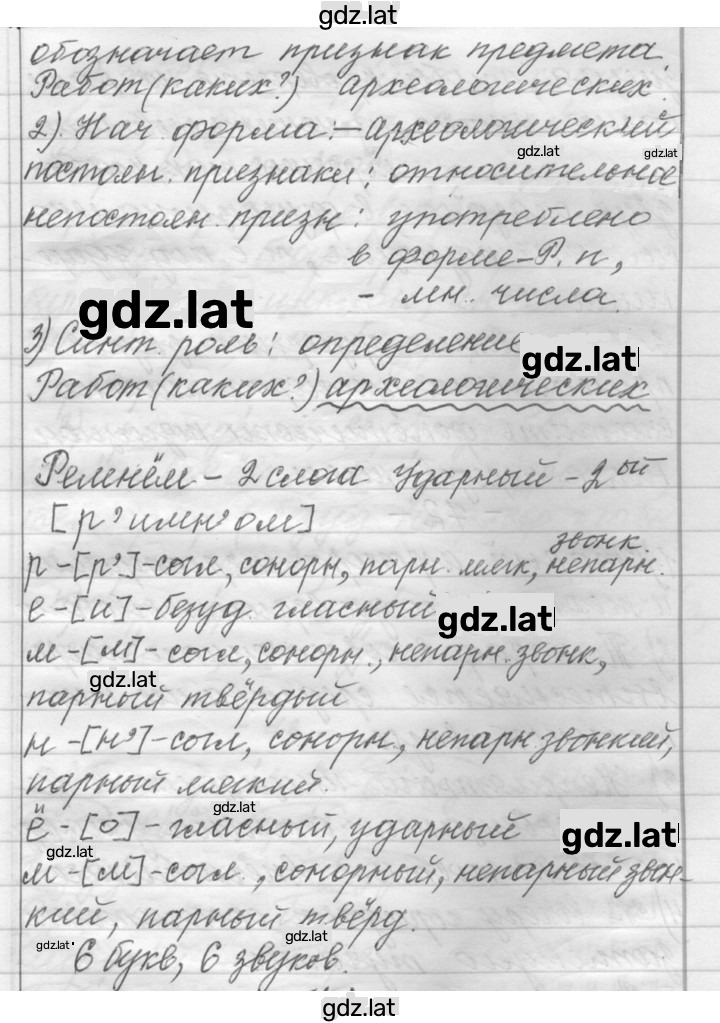 gdz.lat
обозначает признак предмета.
Работ (каких?) археологических.
2) Нач. форма: – археологический
gdz.lat
gdz.lat
постоян. признаки: относительное
непостоян. призн: употреблено
в форме – Р. п,
– мн. числа.
gdz.lat
3) Синт. роль: определение
gdz.lat
Работ (каких?) археологических
Ремнём – 2 слога ударный – 2ой
[р'имн'ом]
звонк.
р – [р'] – согл, сонорн, парн. мягк, непарн.
е – [и] – безуд. гласный
gdz.lat
м – [м] – согл, сонорн., непарн. звонк,
gdz.lat
парный твёрдый
н – [н'] – согл, сонорн., непарн. звонкий,
парный мягкий.
gdz.lat
ё – [о] – гласный, ударный
gdz.lat
gdz.lat
м – [м] – согл., сонорный, непарный звон-
кий, парный твёрд.
gdz.lat
gdz.lat
6 букв, 6 звуков.
gdz.lat